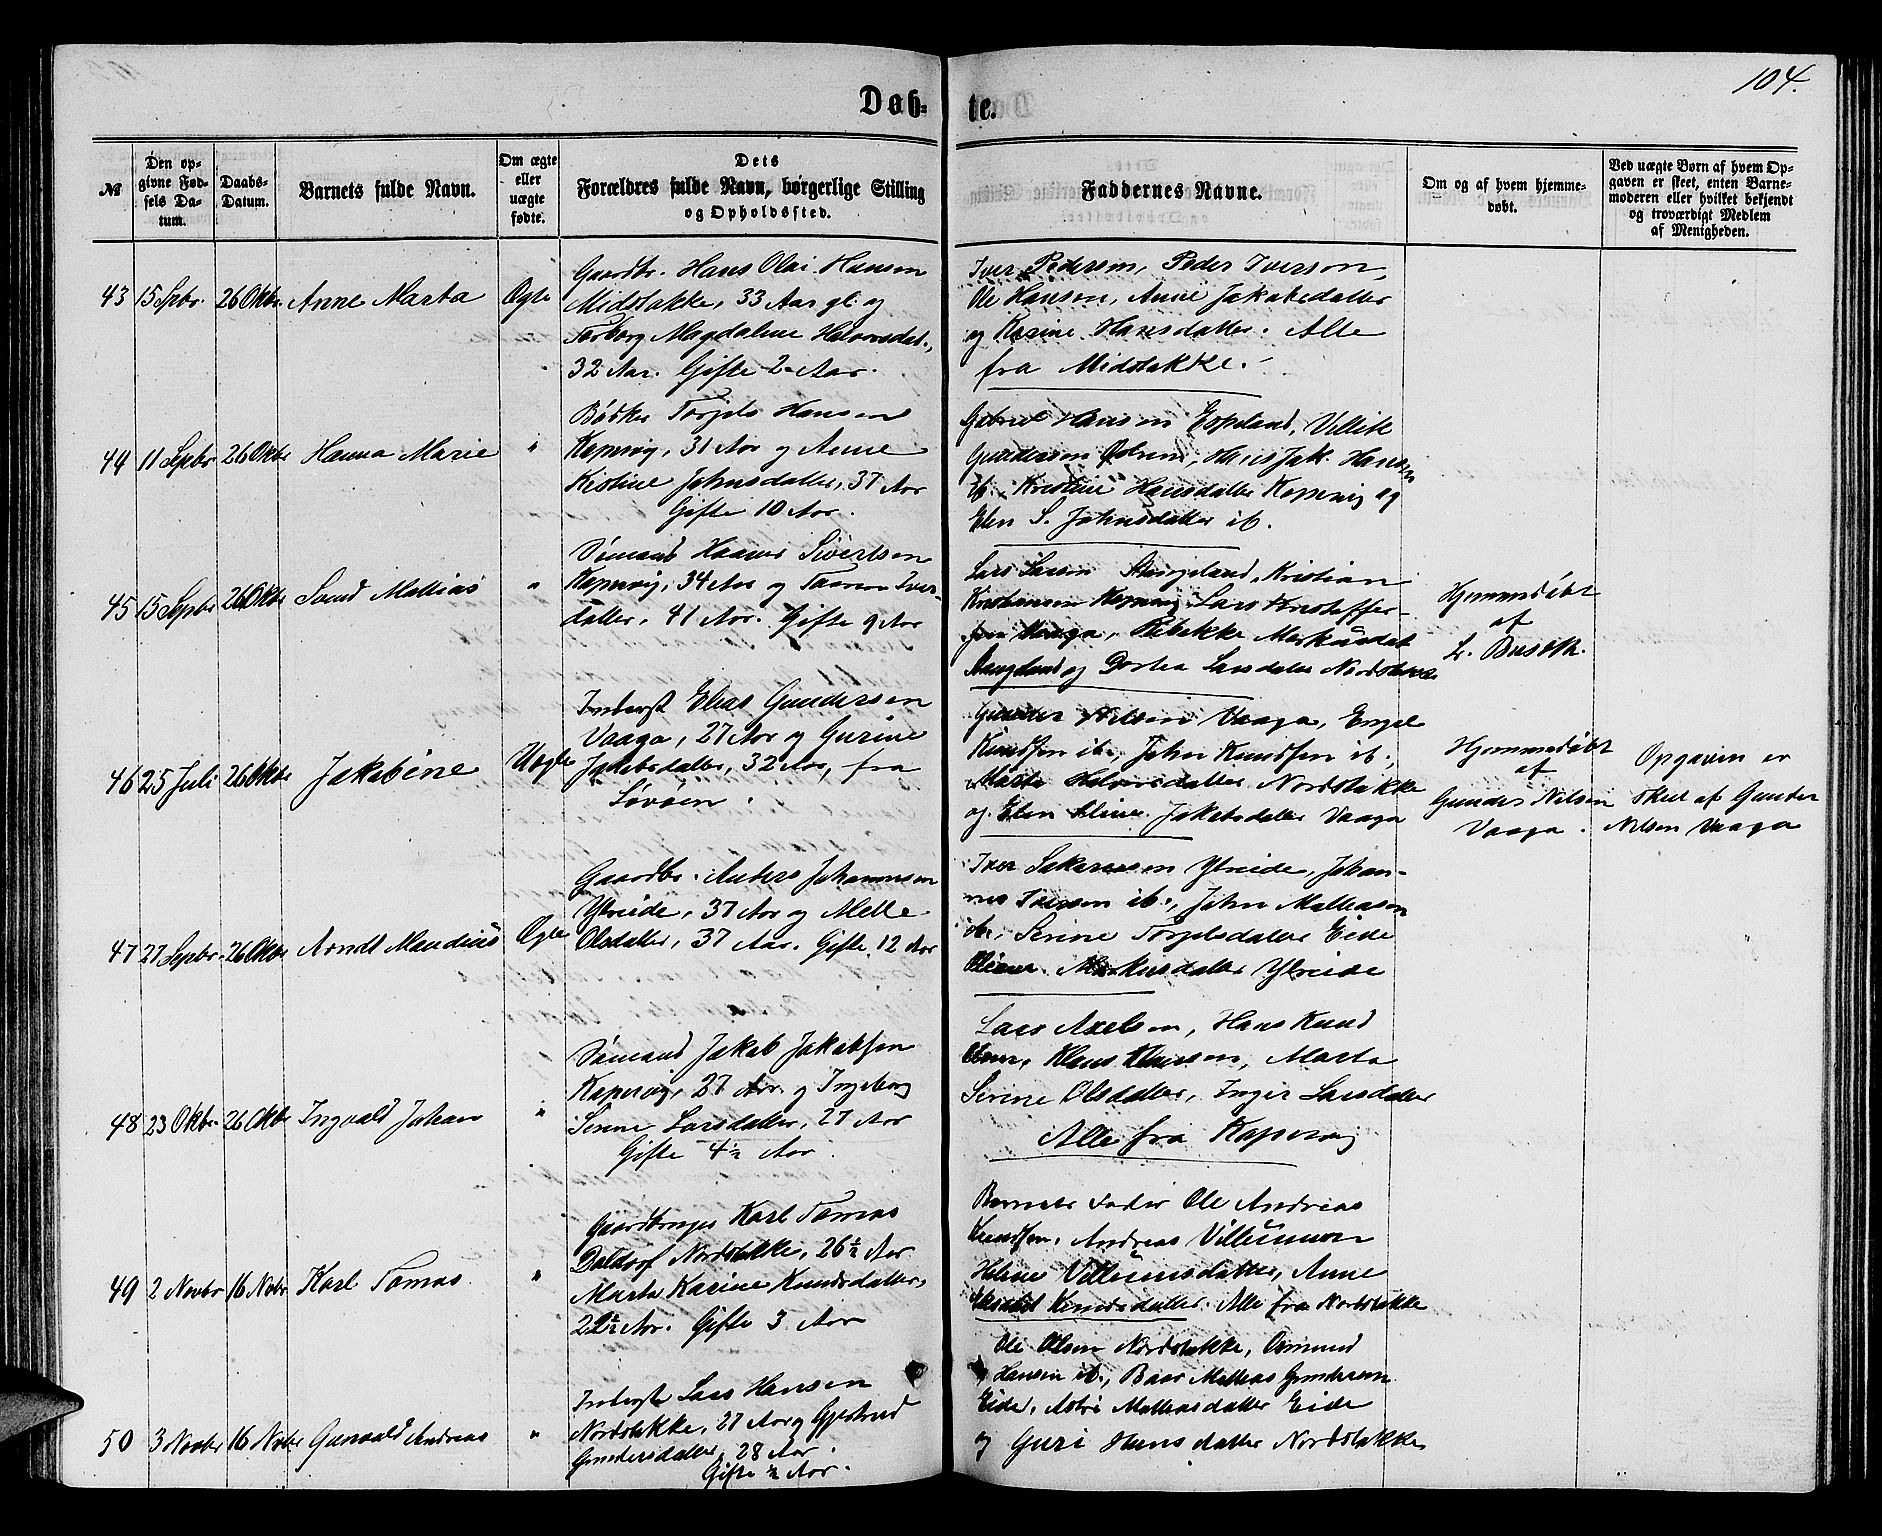 104.
Døb- te.
№
Den op-
givne Fød-
sels Da-
tum.
Daabs-
Datum.
Barnets fulde Navn.
Om ægte
eller
uægte
fødte.
Dets
Forældres fulde Navn, børgerlige Stilling
og Opholdssted.
Faddernes Navne.
Om og af hvem hjemme-
døbt.
Ved uægte Børn af hvem Op-
gaven er skeet, enten Barne-
moderen eller hvilket bekjendt
og troværdigt Medlem
af Menigheden.
43 15 Spbr. 26 Oktbr Anne Marta Ægte
Gaardbr. Hans Olai Hansen
Midstakke, 33 Aar gl. og
Torborg Magdalene Halvorsdat.,
32 Aar. Gifte 2 Aar.
Iver Pedersen, Peder Iversen,
Ole Hansen, Anne Jakobsdatter
og Karine Hansdatter. Alle
fra Midstakke.
44 11 Sepbr 26 Oktbr Hanna Marie "
Bødker Torjels Hansen
Kopervig, 31 Aar og Anne
Kistine Johnsdatter, 37 Aar
Gifte 10 Aar.
Gabriel Hansen Espeland, Villik
Gundersen, Hans Jak. Hansen
ib., Kristine Hansdatter Kopervig og
Elen S. Johnsdatter ib.
45 15 Sepbr 26 Oktbr Svend Mathias "
Sømand Hans Sivertsen
Kopervig, 34 Aar og Tamine Iver-
datter, 41 Aar. Gifte 9 Aar
Lars Larsen Stangeland, Kristian
Kristiansen Kopervig, Lars Kristoffer-
sen Vaaga, Rebekke Markusdat
Stangeland og Dortea Larsdatter Nordstakke
Hjemmedøbt
af
L. Busæth.
46 25 Juli 26 Oktbr Jakobine Uægte
Inderst Elias Gundersen
Vaaga, 27 Aar og Gurine
Jakobsdatter, 32 Aar, fra
Løvøen.
Gunder Nilsen Vaaga, Engel
Knudsen ib., John Knudsen ib.,
Marta Halvorsdatter Nordstakke
og Elen Eline Jakobsdatter Vaaga
Hjemmedøbt
af
Gunder Nilsen
Vaaga.
Opgaven er
skeet af Gunder
Nilsen Vaaga
47 27 Sepbr. 26 Oktbr Arndt Mandius Ægte
Gaardbr. Anders Johannesen
Ytreide, 37 Aar og Melle
Olsdatter, 37 Aar. Gifte 12 Aar
Iver Sakariasen Ytreide, Johan-
nes Iversen ib., John Mathiasen
ib., Serine Torjelsdatter Eide
Markusdatter Ytreide
48 23 Oktbr. 26 Oktbr Ingvald Johan "
Sømand Jakob Jakobsen
Kopervig, 27 Aar og Ingeborg
Serine Larsdatter, 27 Aar
Gifte 4½ Aar.
Lars Axelsen, Hans Knud
Olsen, Klaus Klausen, Marta
Serine Olsdatter, Inger Larsdatter
Alle fra Kopervig
49 2 Novbr 16 Novbr Karl Tomas "
Gaardbruger Karl Tomas
Daldorf Nordstakke, 26½ Aar
Marta Karine Knudsdatter,
22½ Aar. Gifte 3 Aar
Barnets Fader Ole Andreas
Knudsen, Andreas Villumsen
Helene Villumsdatter, Anne
Elisabet Knudsdatter. Alle fra Nordstakke
50 3 Novbr 16 Novbr Gunvald Andreas "
Inderst Lars Hansen
Nordstakke, 27 Aar og Gjertrud
Gundersdatter, 28 Aar.
Gifte ½ Aar.
Ole Olsen Nordstakke, Osmund
Hansen ib., Baar Mathias Gundersen
Eide, Astri Mathiasdatter Eide
og Guri Hansdatter Nordstakke